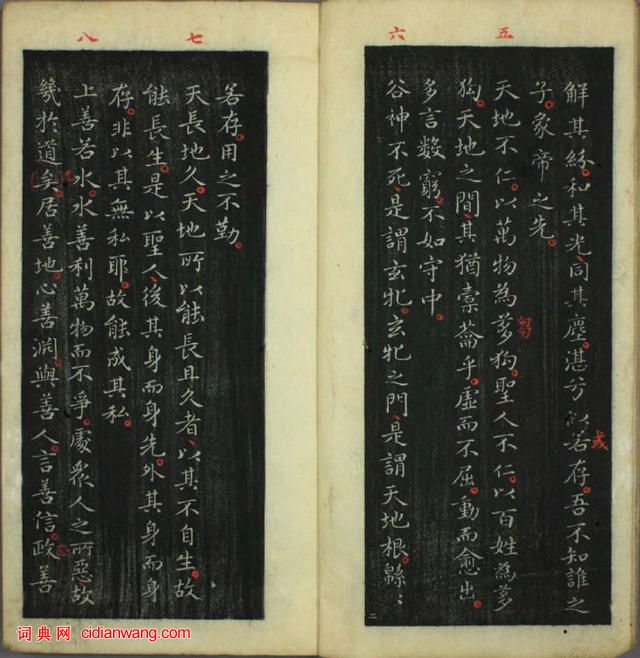 五
六
解其紛和其光同其塵湛兮似若存吾不知誰之
或
子象帝之先
天地不仁以萬物為芻狗聖人不仁以百姓為芻
芻
狗天地之間其猶橐籥乎虛而不屈動而愈出
多言數窮不如守中
谷神不死是謂玄牝玄牝之門是謂天地根緜〻
二
七
八
若存用之不勤
天長地久天地所以能長且久者以其不自生故
能長生是以聖人後其身而身先外其身而身
存非以其無私耶故能成其私
上善若水水善利萬物而不爭處眾人之所惡故
幾於道矣居善地心善渊與善人言善信政善
词典网 cidianwang.com